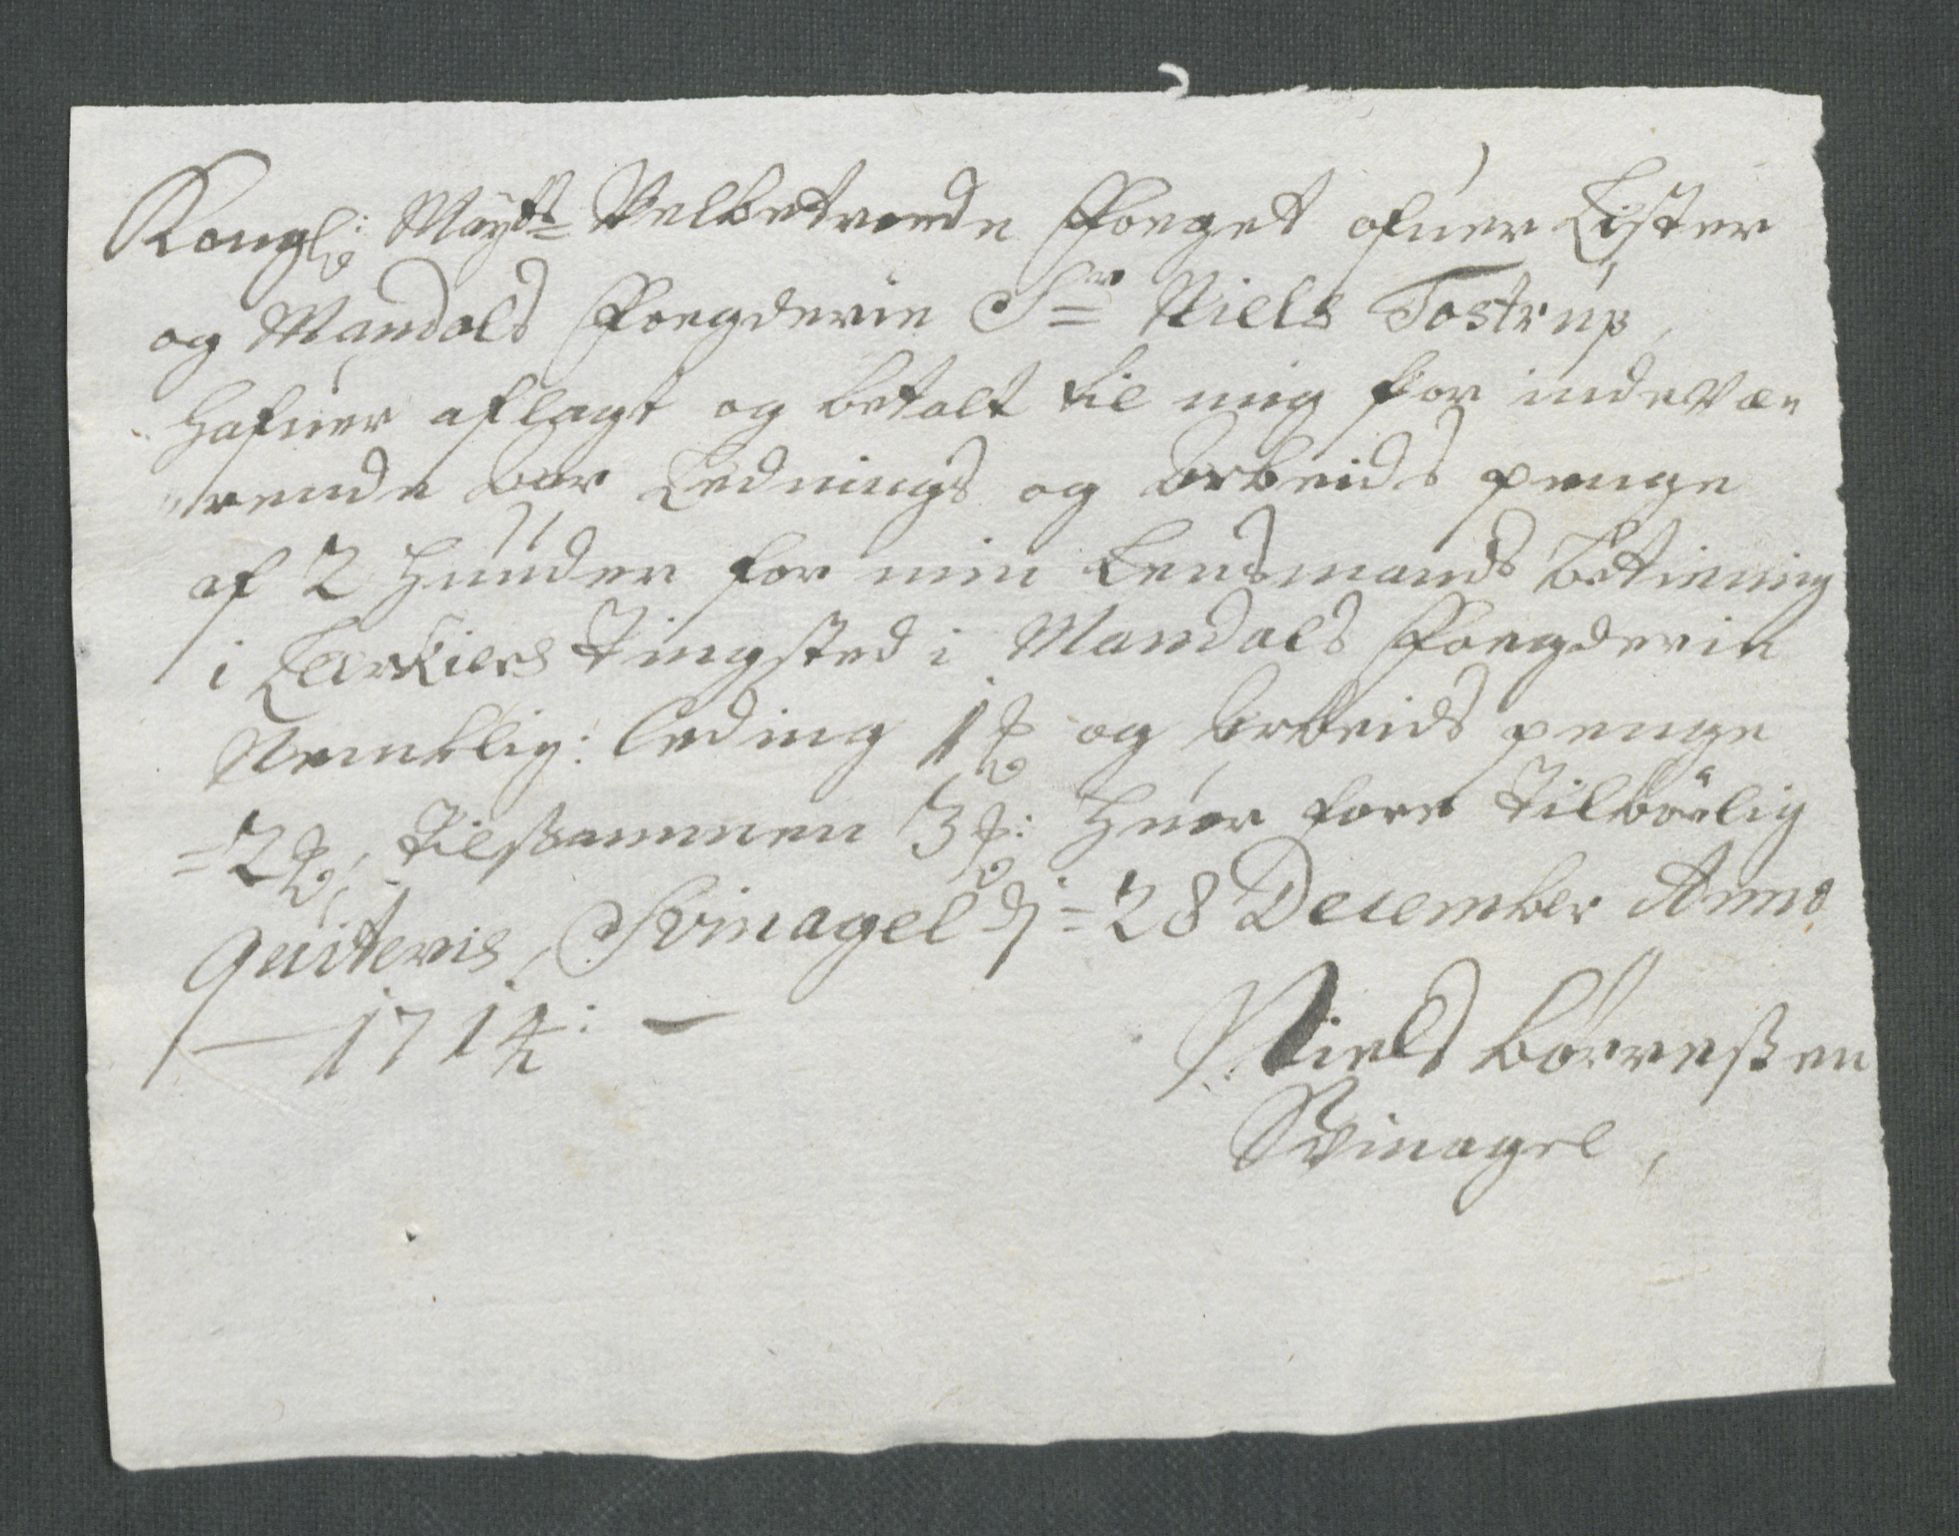 Kongl: Mayts Velbetroede Fforget ofuer Lister
og Mandals Fforgderie Sr Niels Tostrup,
hafuer aflagt og betalt til mig for indevæ-
rende aar Ledings og Arbeids penge
af 2 Hunder for min Lensmands Betiening
i Tingsted i Mandals Fforgderie
Nemblig: Leding 1 og Arbeids penge
=2, tilsammen 3: Huor fore tilbörlig
quiteris, Svinagel dj=28 December Anno
1714: —
Niels Börreßen
Svinagel,